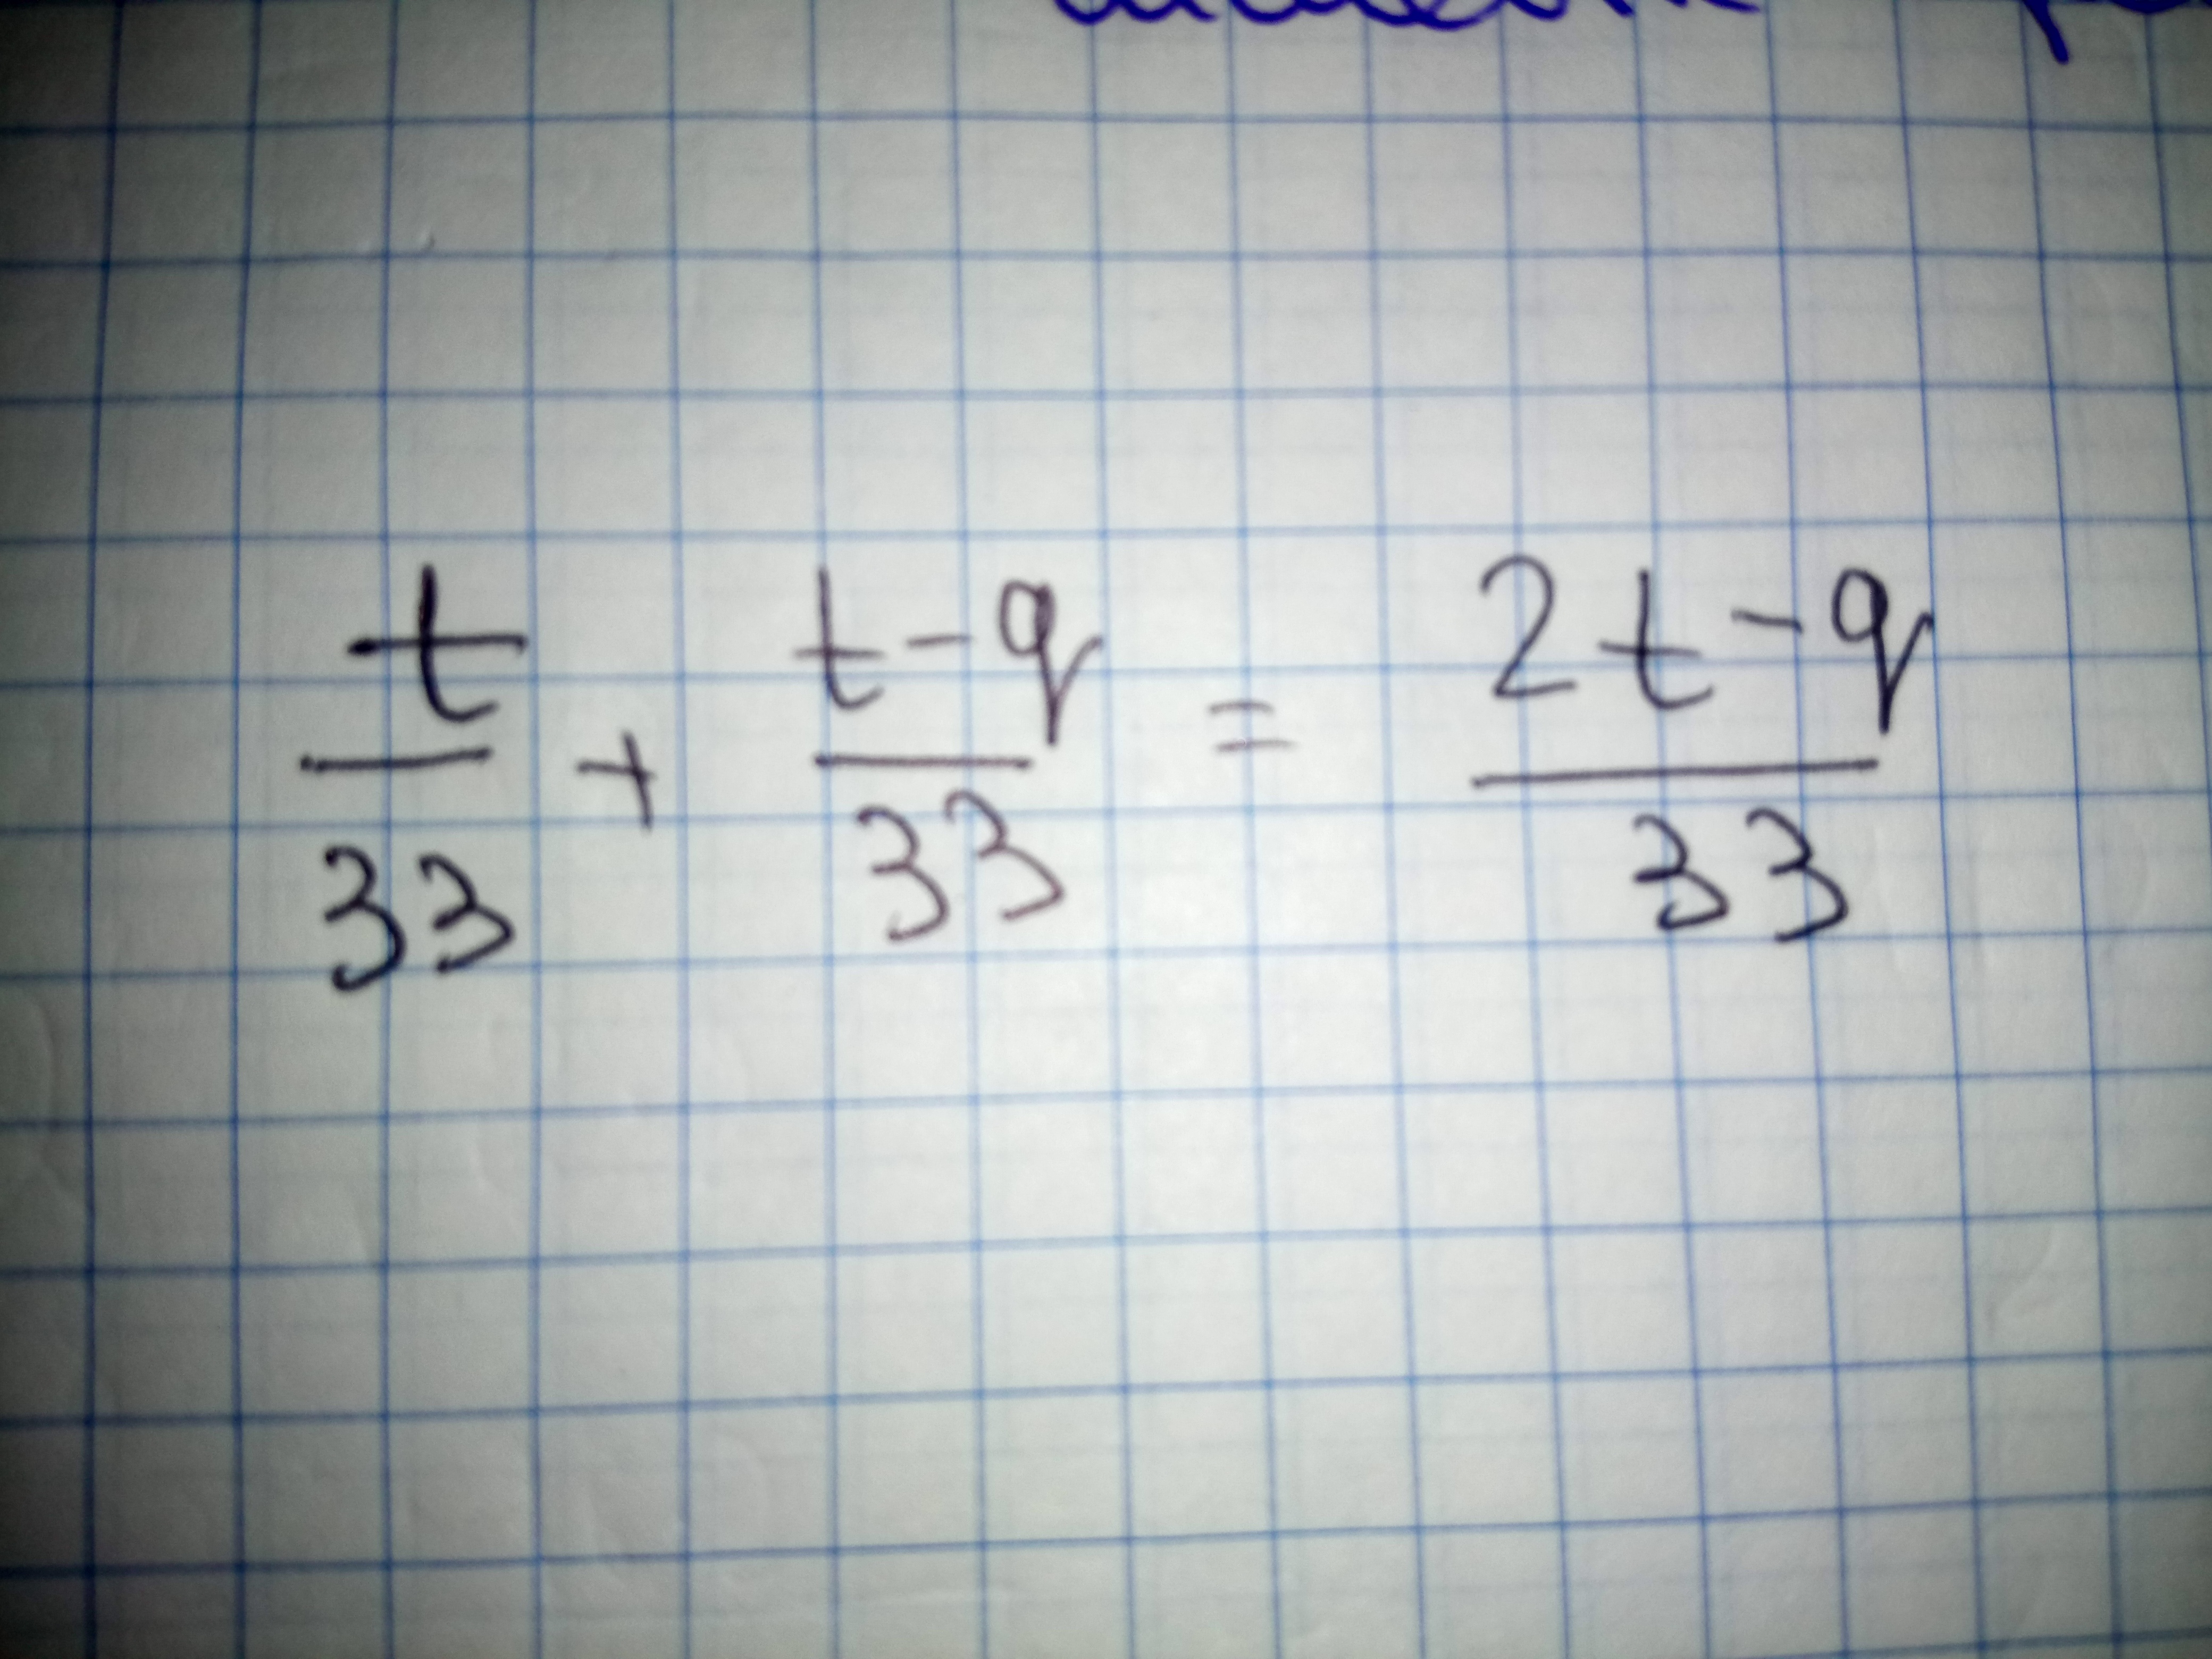 t/33 + t-q/33 = 2t-q/33